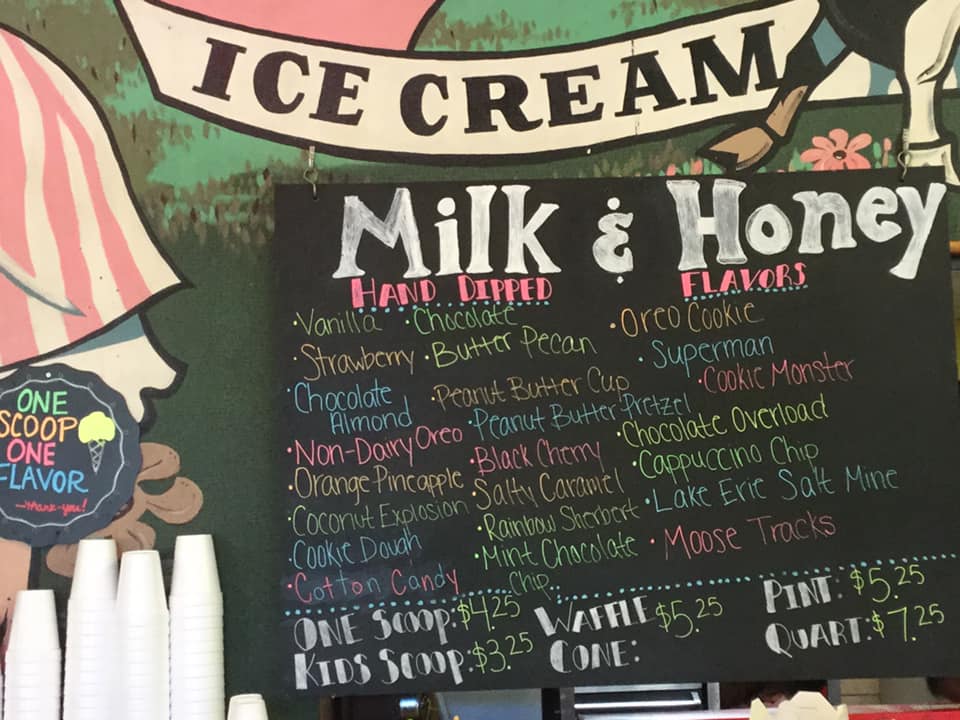 ICE CREAM
Milk & Honey
HAND DIPPED FLAVORS
·Vanilla ·Chocolate ·Oreo Cookie
·Strawberry ·Butter Pecan ·Superman
·Chocolate Almond ·Peanut Butter Cup ·Cookie Monster
·Non-Dairy Oreo ·Peanut Butter Pretzel ·Chocolate Overload
·Orange Pineapple ·Black Cherry ·Cappuccino Chip
·Coconut Explosion ·Salty Caramel ·Lake Erie Salt Mine
·Cookie Dough ·Rainbow Sherbert ·Moose Tracks
·Cotton Candy ·Mint Chocolate Chip
ONE SCOOP: $4.25 WAFFLE CONE: $5.25 PINT: $5.25
KIDS SCOOP: $3.25 QUART: $7.25
ONE
SCOOP
ONE
FLAVOR
-thank-you!